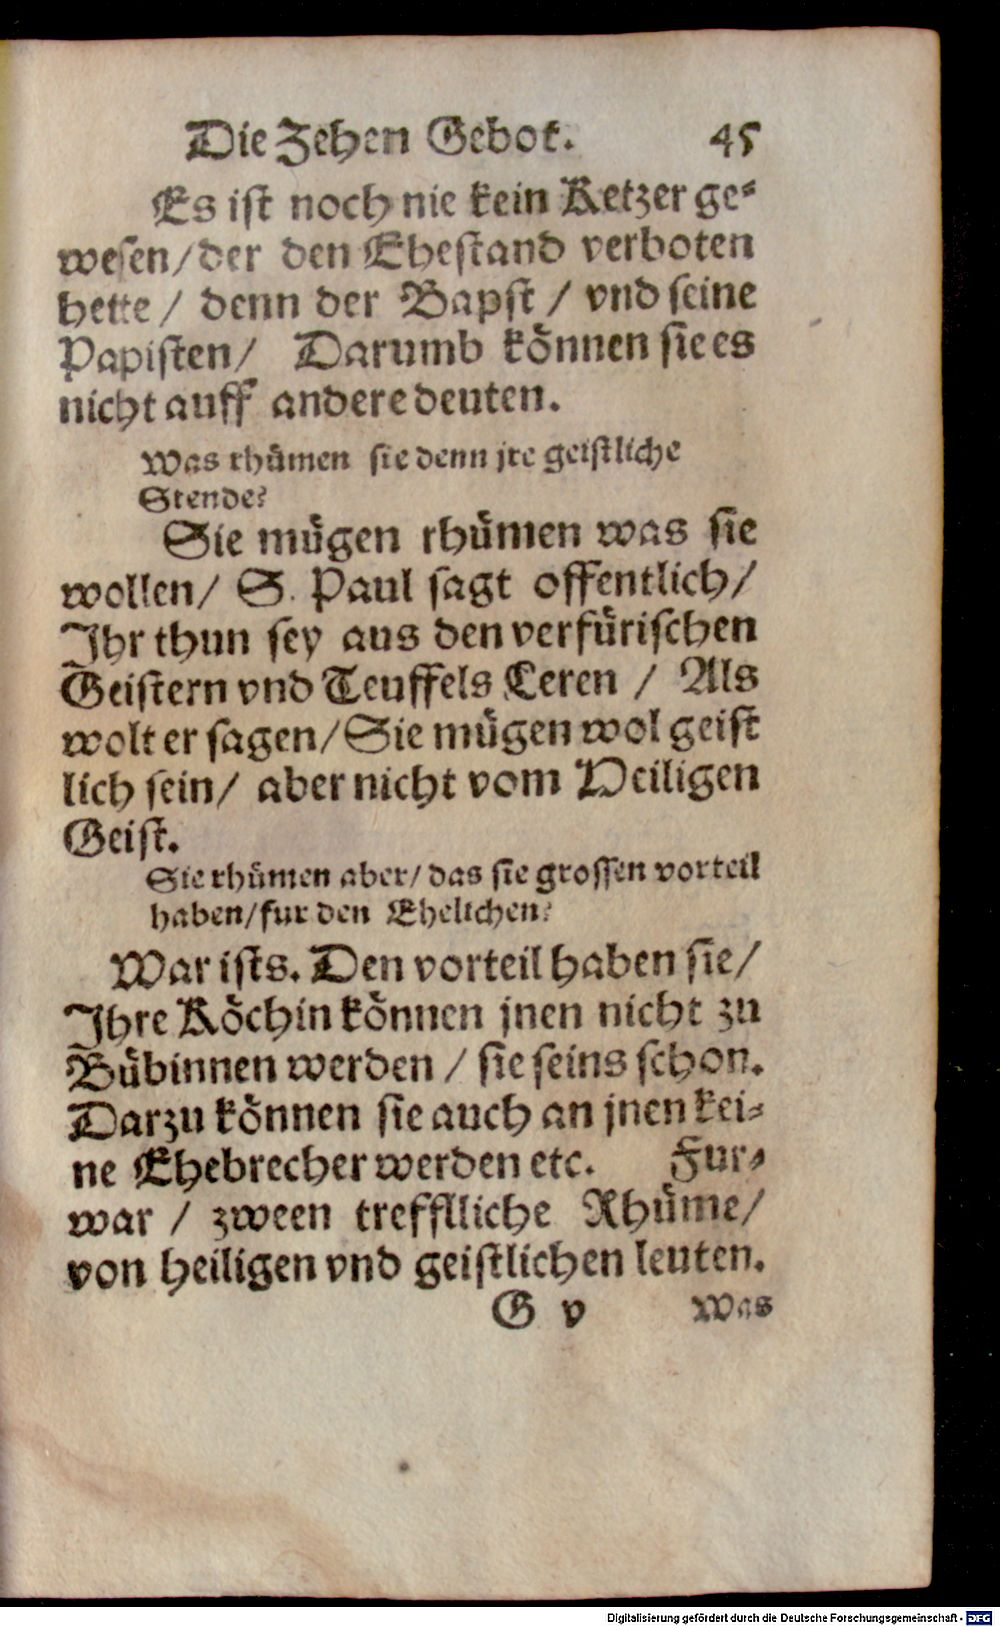 Die Zehen Gebot. 45
Es ist noch nie kein Ketzer ge-
wesen/der den Ehestand verboten
hette / denn der Bapst / vnd seine
Papisten/ Darumb können sie es
nicht auff andere deuten.
Was rhümen sie denn jre geistliche
Stende?
Sie mügen rhümen was sie
wollen/ S. Paul sagt offentlich/
Ihr thun sey aus den verfürischen
Geistern vnd Teuffels Leren / Als
wolt er sagen/Sie mügen wol geist
lich sein/ aber nicht vom Heiligen
Geist.
Sie rhümen aber/das sie grossen vorteil
haben/fur den Ehelichen?
War ists. Den vorteil haben sie/
Ihre Köchin können jnen nicht zu
Bübinnen werden / sie seins schon.
Darzu können sie auch an jnen kei-
ne Ehebrecher werden etc. Fur-
war / zween treffllliche Rhüme/
von heiligen vnd geistlichen leuten.
G v Was
Digitalisierung gefördert durch die Deutsche Forschungsgemeinschaft - DFG